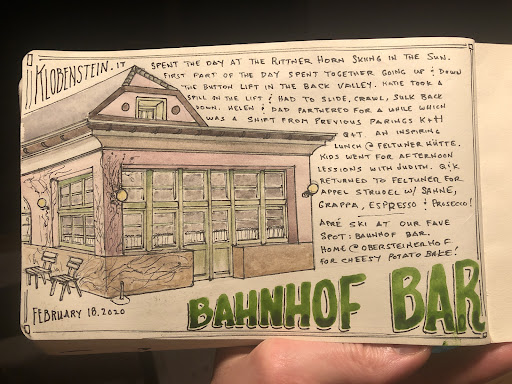 Klobenstein, IT
Spent the day at the Rittner Horn skiing in the sun.
First part of the day spent together going up & down
the button lift in the back valley. Katie took a
spill on the lift & had to slide, crawl, sulk back
down. Helen & Dad partnered for a while which
was a shift from previous parings K+H
G+T. An inspiring
lunch @ Feltuner Hütte.
Kids went for afternoon
lessions with Judith. G&K
returned to Feltuner for
appel strudel w/ sahne,
grappa, espresso & prosecco!
Apré ski at our fave
spot: Bahnhof Bar.
Home @ Obersteinerhof
for cheesy potato bake!
February 18, 2020
BAHNHOF BAR